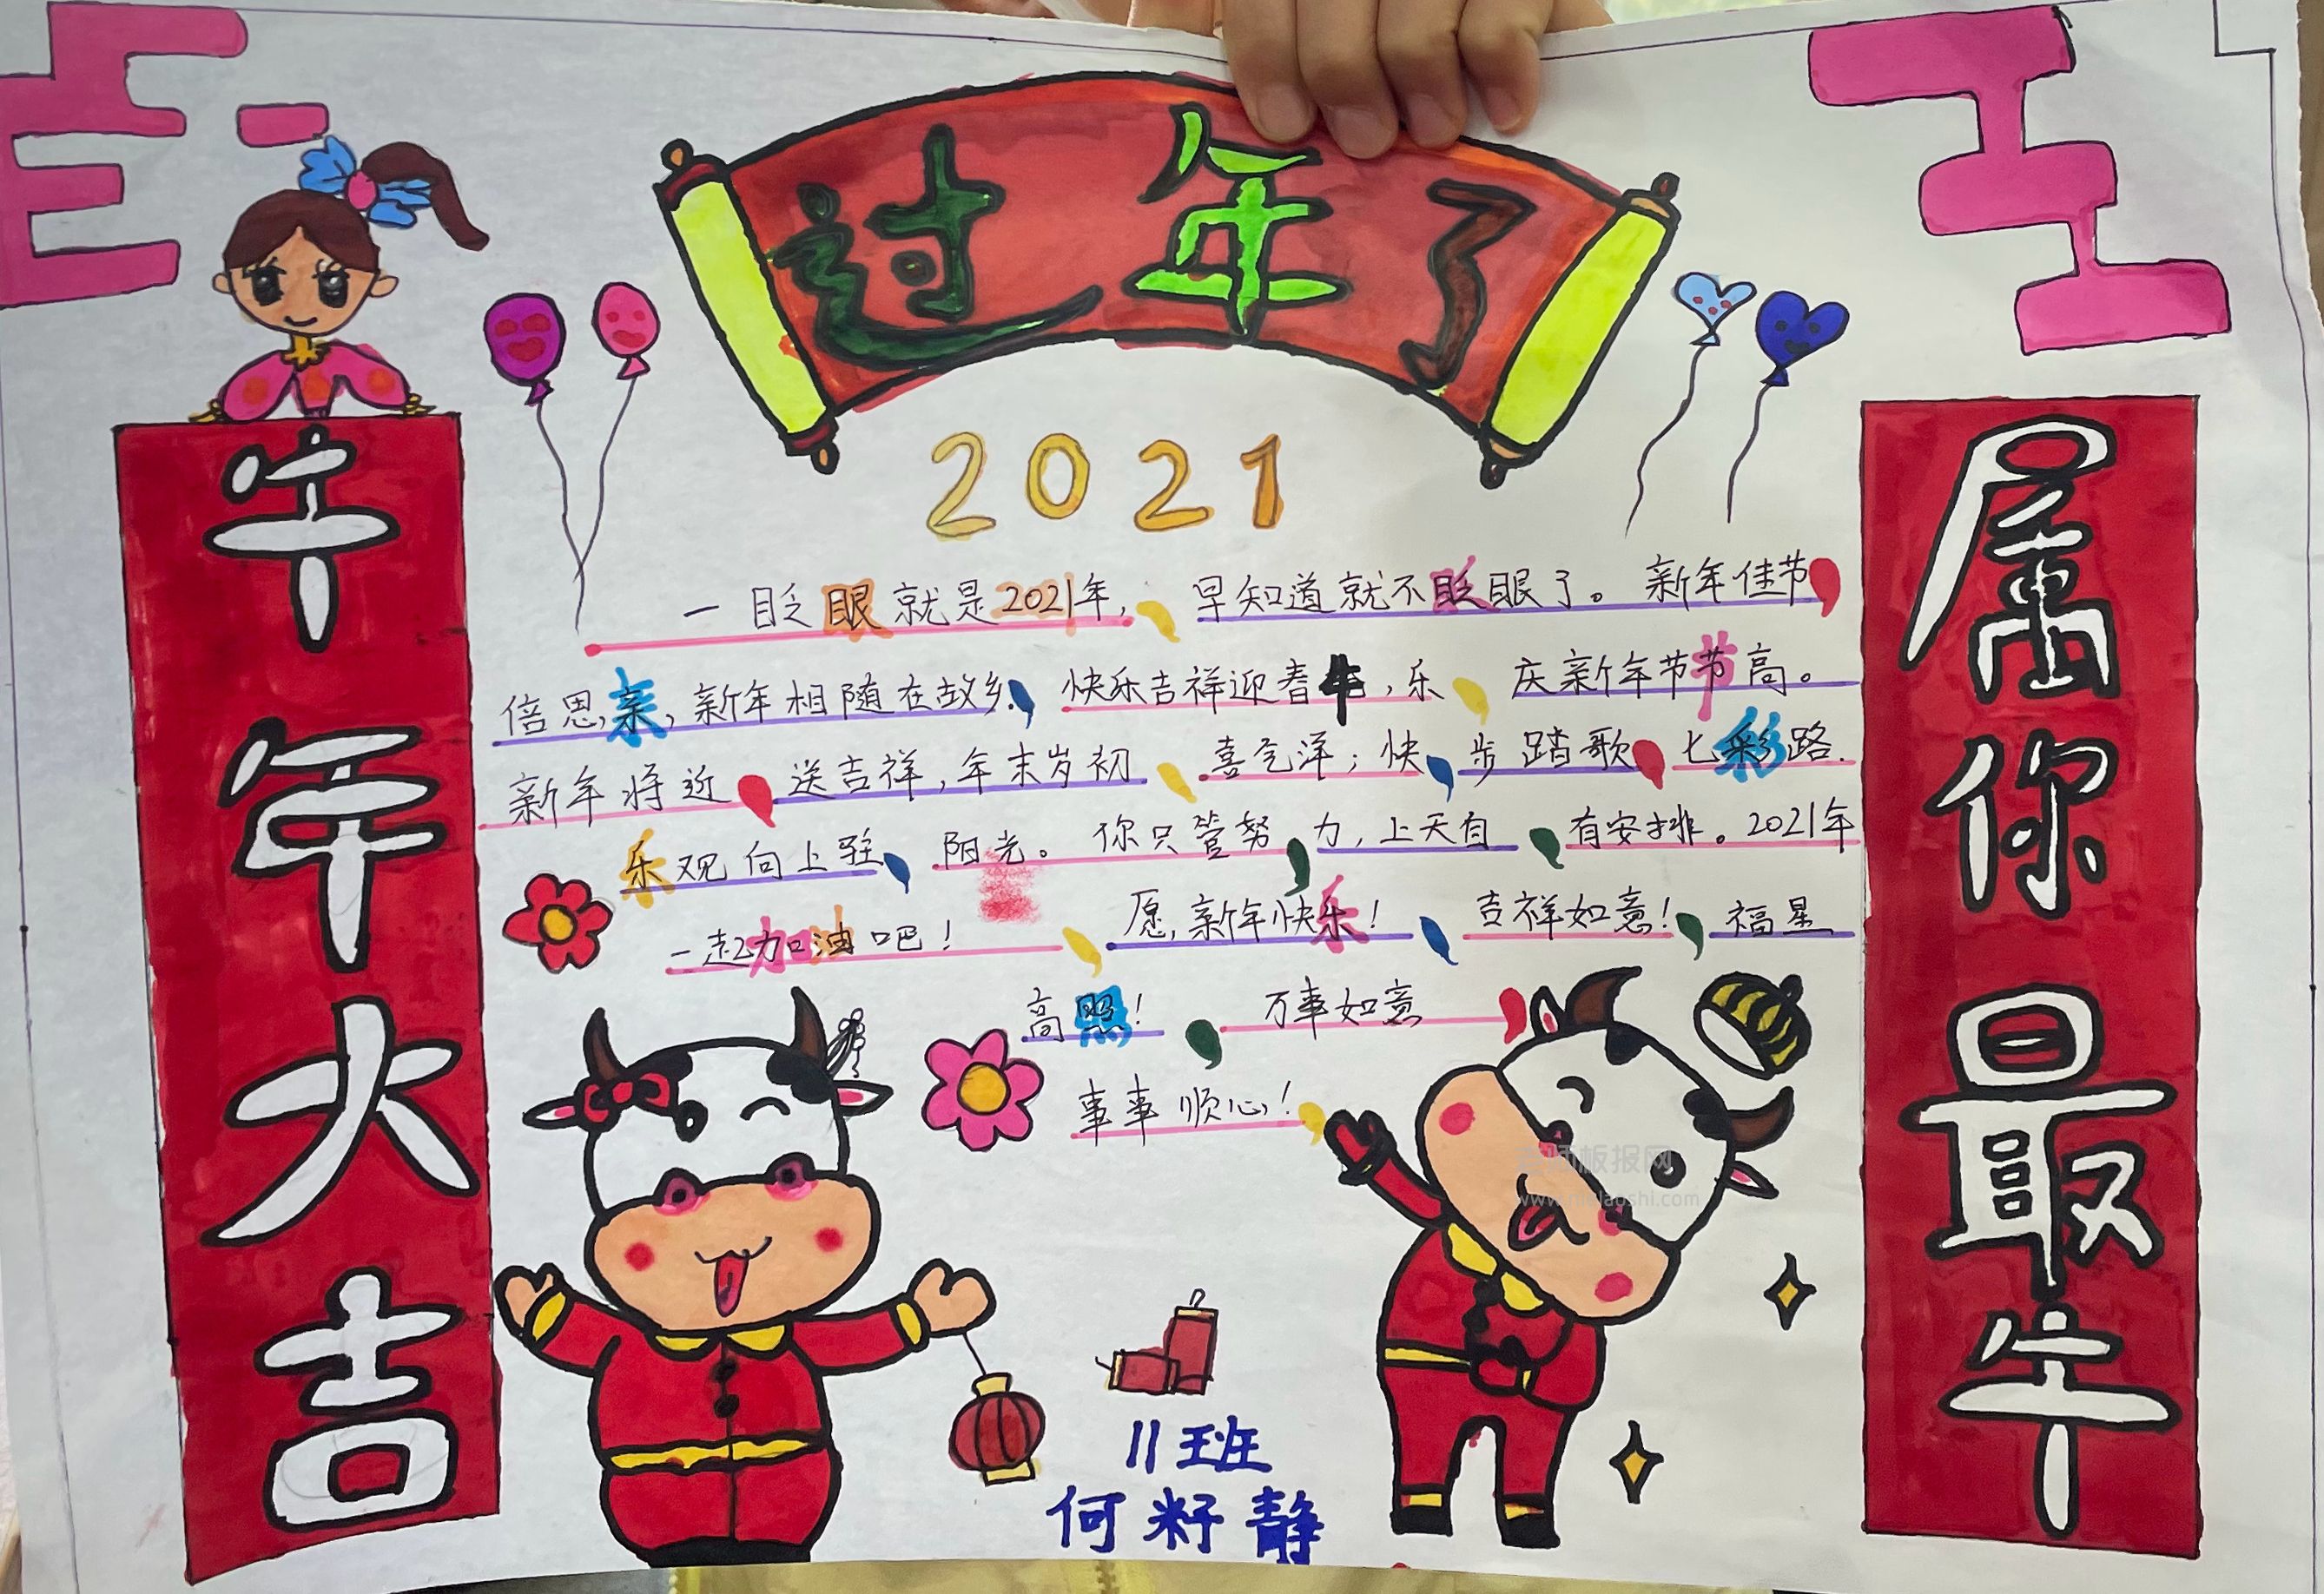 过年了
2021
牛年大吉
属你最牛
一眨眼就是2021年,早知道就不眨眼了。新年佳节
倍思亲,新年相随在故乡.快乐吉祥迎春牛,乐庆新年节节高。
新年将近送吉祥,年末岁初喜气洋;快步踏歌七彩路.
乐观向上驻阳光。你只管努力,上天自有安排。2021年
一起加油吧!愿,新年快乐!吉祥如意!福星
高照!万事如意
事事顺心!
11班
何籽静
老师板报网